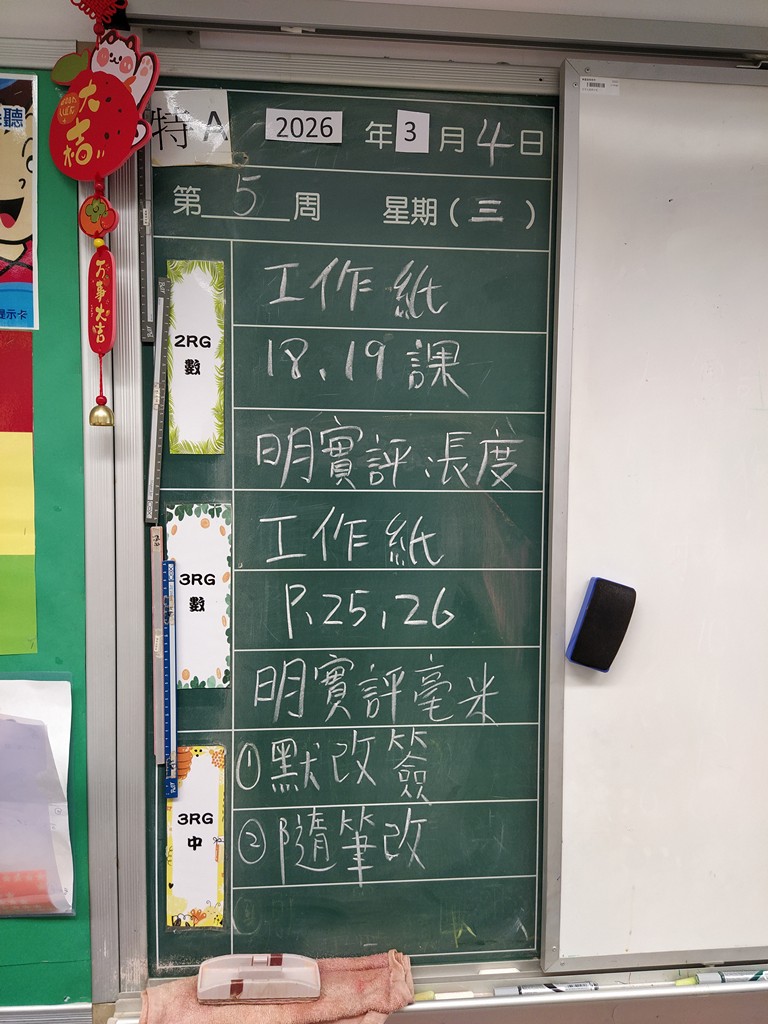 大吉
萬事大吉
聽
提示卡
特 A
2026 年 3 月 4 日
第 5 周 星期(三)
2RG
數
工作紙
18、19課
明實評:長度
3RG
數
工作紙
P.25,26
明實評毫米
3RG
中
①默改簽
②隨筆改